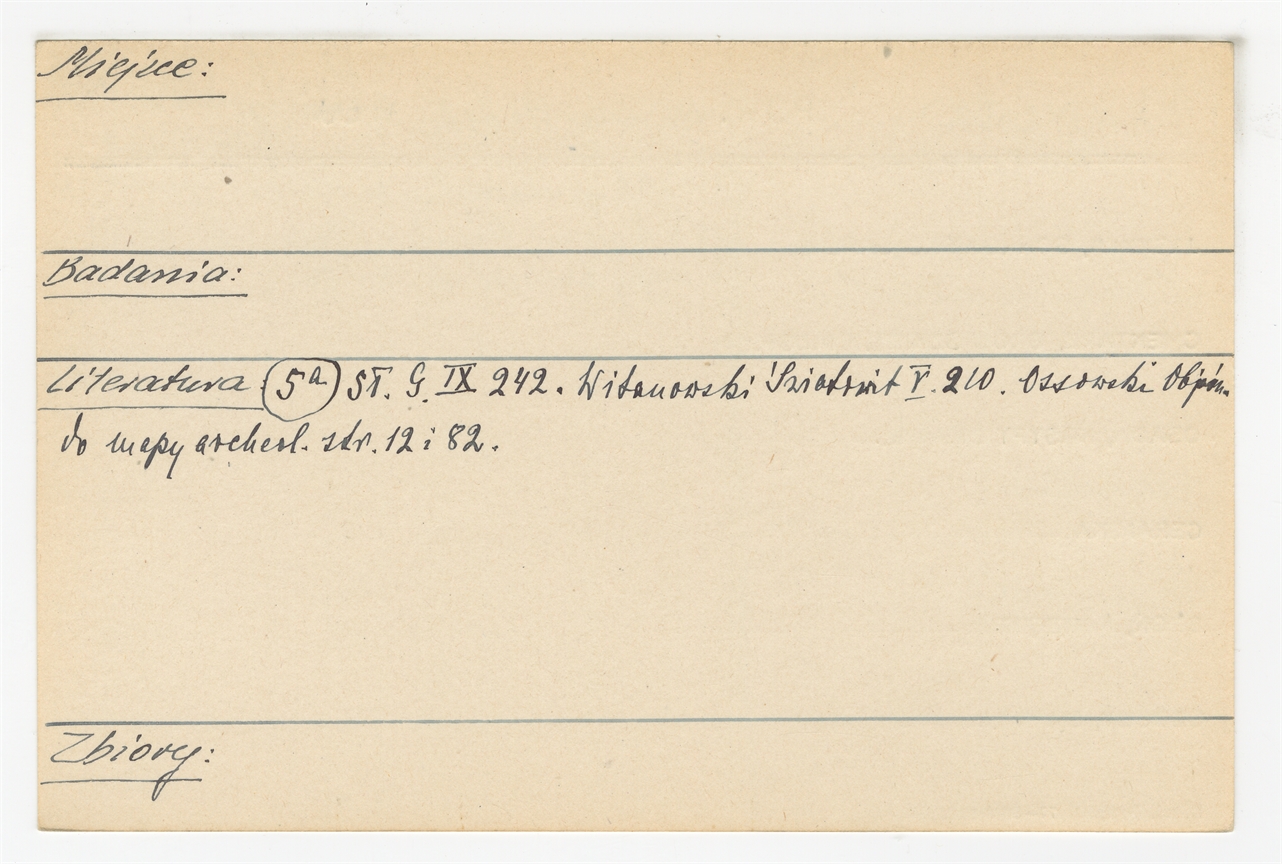 Miejsce:
Badania:
Literatura: 5a Sł. G. IX 242. Witanowski Światowit V. 210. Ossowski Objaśn.
do mapy archeol. str. 12 i 82.
Zbiory: